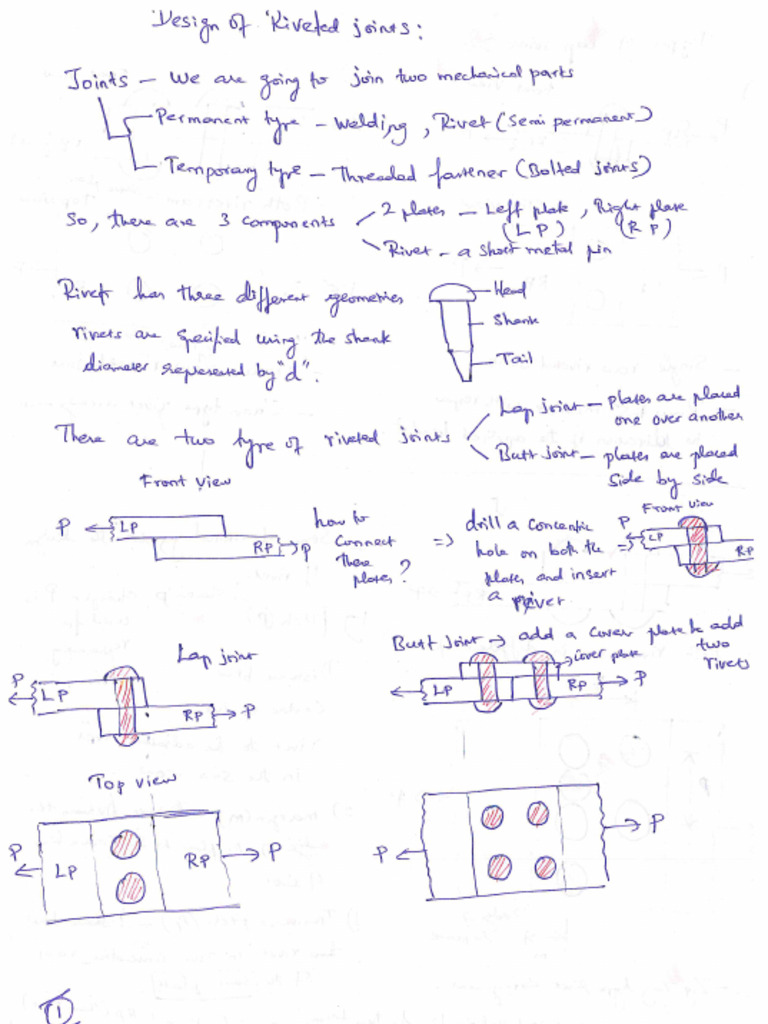 Design of Riveted joints:
Joints - We are going to join two mechanical parts
Permanent type - Welding, Rivet (Semi permanent)
Temporary type - Threaded fastener (Bolted joints)
So, there are 3 components
2 plates - Left plate, Right plate
(LP) (RP)
Rivet - a short metal pin
Rivet has three different geometries
rivets are specified using the shank
diameter represented by "d".
Head
Shank
Tail
There are two type of riveted joints
Lap joint - plates are placed
one over another
Butt Joint - plates are placed
side by side
Front view
P LP RP P
how to
connect
these
plates?
=> drill a concentric
hole on both the =>
plates and insert
a rivet
Front view
P LP RP
Lap joint
P LP RP P
Butt Joint → add a cover plate & add
two
rivets
cover plate
LP RP P
Top view
P LP RP P
P P
1